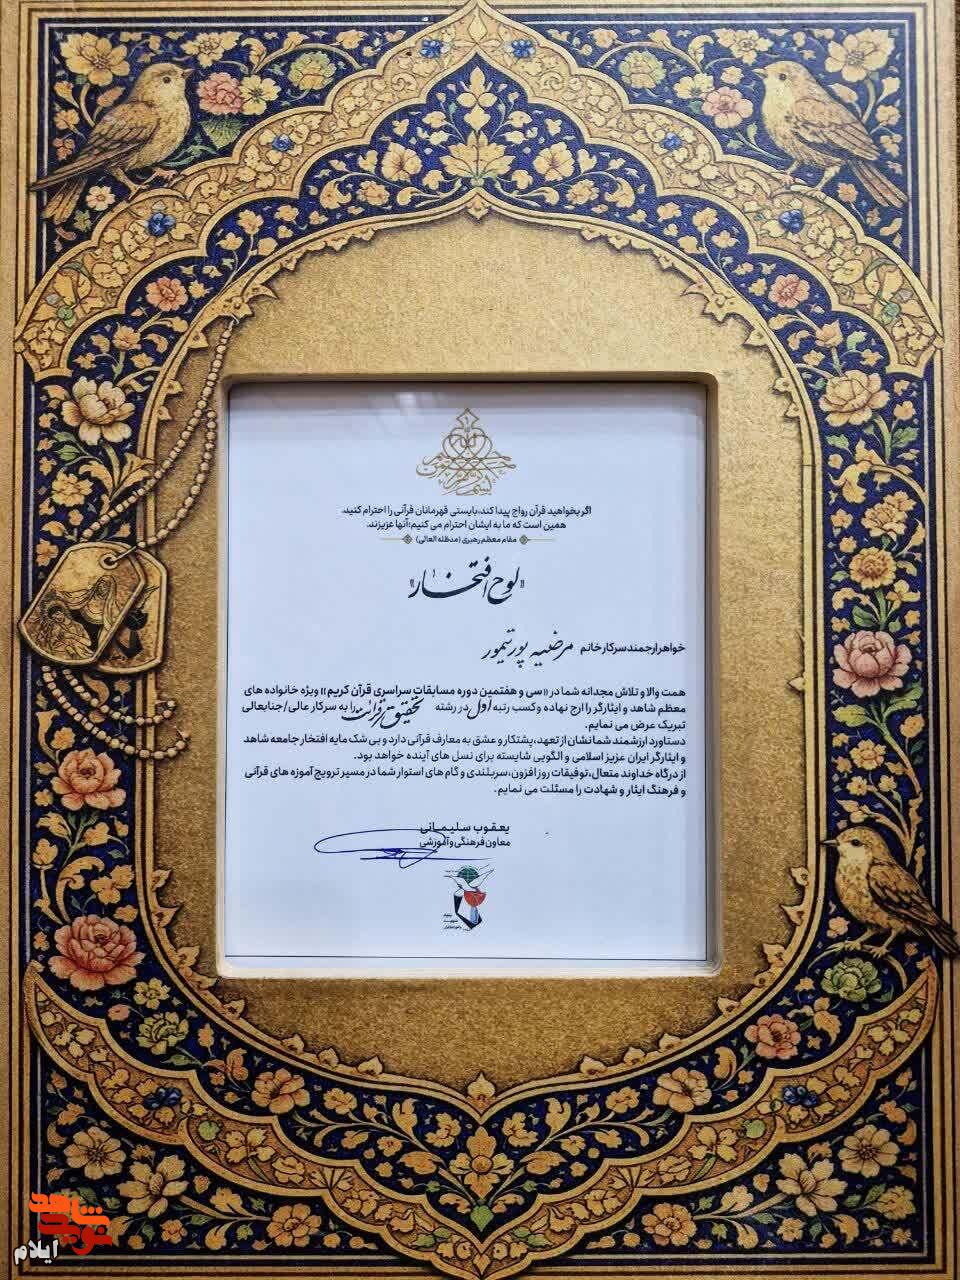 اگر بخواهید قرآن رواج پیدا کند، بایستی قهرمانان قرآنی را احترام کنید.
همین است که ما به ایشان احترام می کنیم؛ آنها عزیزند.
مقام معظم رهبری (مدظله العالی)
«لوح افتخار»
خواهر ارجمند سرکار خانم مرضیه پورتیمور
همت والا و تلاش مجدانه شما در «سی و هفتمین دوره مسابقات سراسری قرآن کریم» ویژه خانواده های
معظم شاهد و ایثارگر را ارج نهاده و کسب رتبه اول در رشته تحقیق قرائت را به سرکار عالی/جنابعالی
تبریک عرض می نمایم.
دستاورد ارزشمند شما نشان از تعهد، پشتکار و عشق به معارف قرآنی دارد و بی شک مایه افتخار جامعه شاهد
و ایثارگر ایران عزیز اسلامی و الگویی شایسته برای نسل های آینده خواهد بود.
از درگاه خداوند متعال، توفیقات روز افزون، سربلندی و گام های استوار شما در مسیر ترویج آموزه های قرآنی
و فرهنگ ایثار و شهادت را مسئلت می نمایم.
یعقوب سلیمانی
معاون فرهنگی و آموزشی
نوید شاهد
ایلام